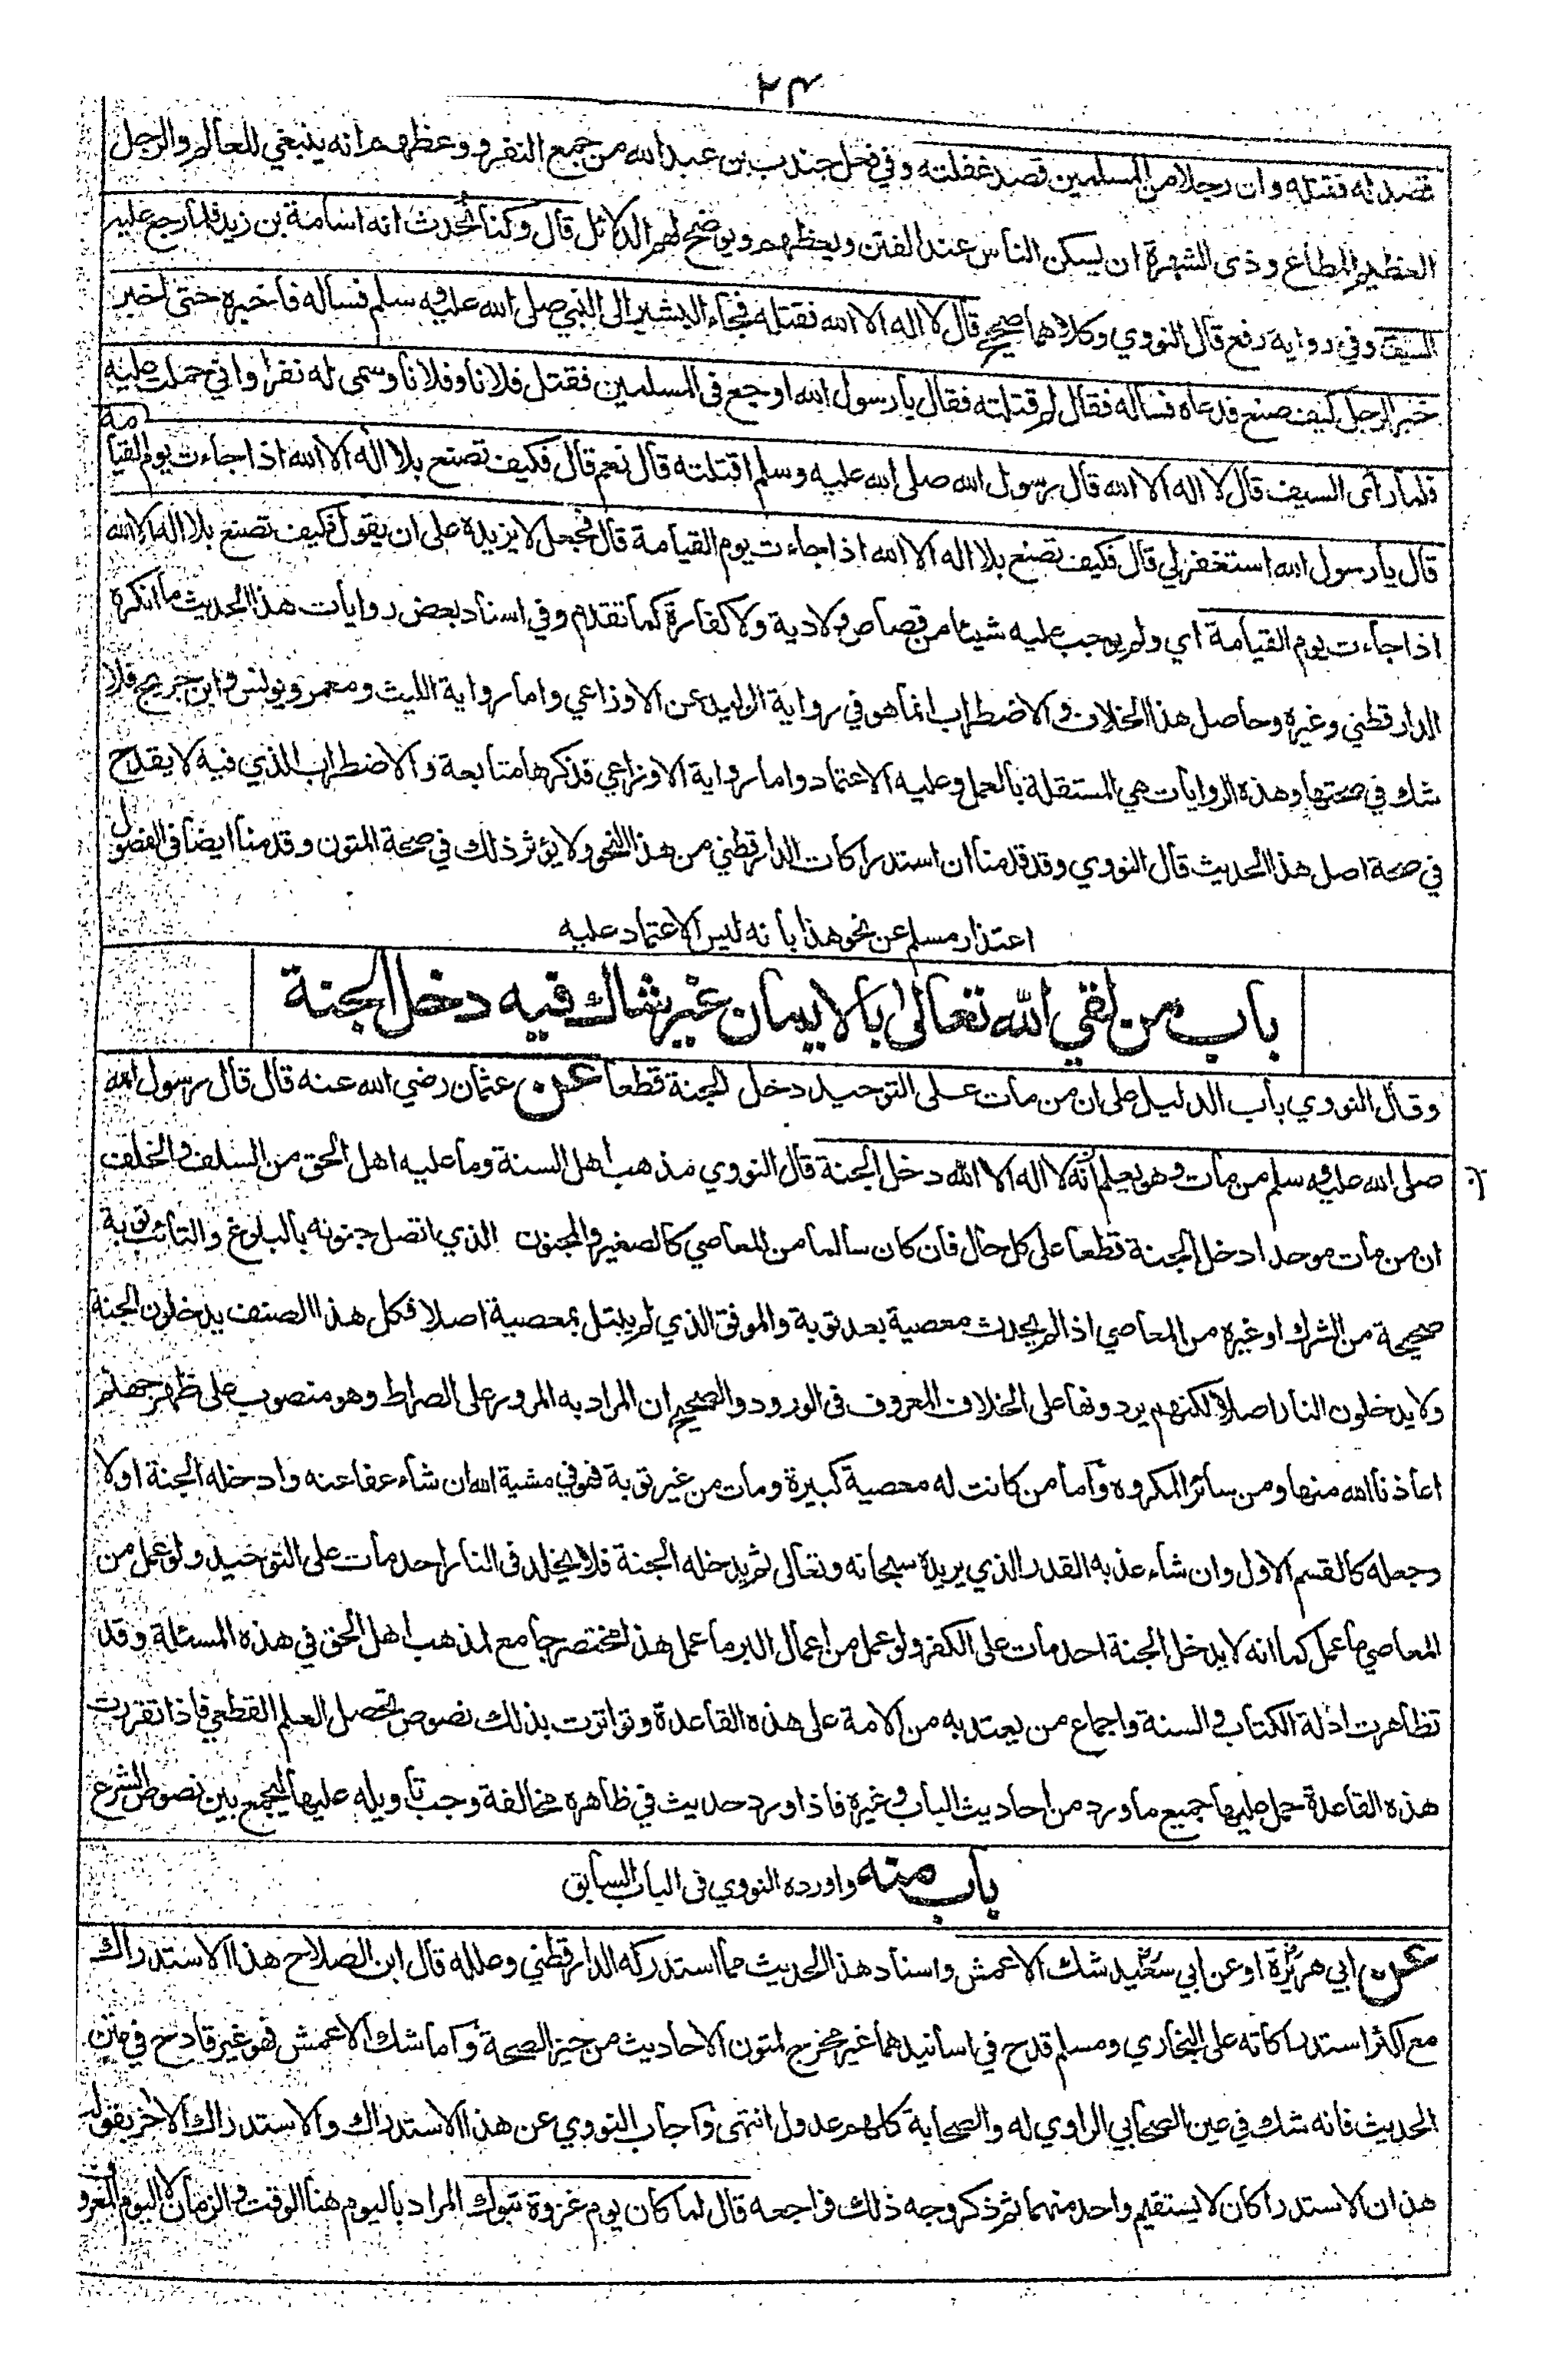 ٢٤
قصد له فقتله وان رجلا من المسلمين قصد غفلته وفي فعل جندب بن عبد الله من جمع النفر ووعظهم انه ينبغي للعالم والرجل
العظيم المطاع وذى الشهرة ان يسكن الناس عند الفتن ويعظهم ويوضح لهم الدلائل قال وكنا نحدث انه اسامة بن زيد فلما رجع عليه
السيف وفي رواية رفع قال النووي وكلاهما صحيح قال لا اله الا الله فقتله فجاء البشير الى النبي صلى الله عليه وسلم فسأله فأخبره حتى اخبره
خبر الرجل كيف صنع فدعاه فسأله فقال لم قتلته فقال يا رسول الله اوجع فى المسلمين فقتل فلانا وفلانا وسمى له نفرا واني حملت عليه
فلما رأى السيف قال لا اله الا الله قال رسول الله صلى الله عليه وسلم اقتلته قال نعم قال فكيف تصنع بلا اله الا الله اذا جاءت يوم القيامة
قال يا رسول الله استغفر لي قال فكيف تصنع بلا اله الا الله اذا جاءت يوم القيامة قال فجعل لا يزيده على ان يقول فكيف تصنع بلا اله الا الله
اذا جاءت يوم القيامة اي ولم يوجب عليه شيئا من قصاص ولا دية ولا كفارة كما تقدم وفي اسناد بعض روايات هذا الحديث ما انكره
الدارقطني وغيره وحاصل هذا الخلاف والاضطراب انما هو في رواية الوليد عن الاوزاعي واما رواية الليث ومعمر ويونس وابن جريج فلا
شك في صحتها وهذه الروايات هي المستقلة بالعمل وعليه الاعتماد واما رواية الاوزاعي فذكرها متابعة والاضطراب الذي فيه لا يقدح
في صحة اصل هذا الحديث قال النووي وقد قدمنا ان استدراكات الدارقطني من هذا النحو ولا يؤثر ذلك في صحة المتون وقدمنا ايضا فى الفصول
اعتذار مسلم عن نحو هذا بأنه ليس الاعتماد عليه
باب من لقي الله تعالى بالايمان غير شاك فيه دخل الجنة
وقال النووي باب الدليل على ان من مات على التوحيد دخل الجنة قطعا عن عثمان رضي الله عنه قال قال رسول الله
صلى الله عليه وسلم من مات وهو يعلم أنه لا اله الا الله دخل الجنة قال النووي مذهب اهل السنة وما عليه اهل الحق من السلف والخلف
ان من مات موحدا دخل الجنة قطعا على كل حال فان كان سالما من المعاصي كالصغير والمجنون الذي اتصل جنونه بالبلوغ والتائب توبة
صحيحة من الشرك او غيره من المعاصي اذا لم يحدث معصية بعد توبة والموفق الذي لم يبتل بمعصية اصلا فكل هذا الصنف يدخلون الجنة
ولا يدخلون النار اصلا لكنهم يردونها على الخلاف المعروف فى الورود والصحيح ان المراد به المرور على الصراط وهو منصوب على ظهر جهنم
اعاذنا الله منها ومن سائر المكروه واما من كانت له معصية كبيرة ومات من غير توبة فهو في مشية الله ان شاء عفا عنه وادخله الجنة اولا
وجعله كالقسم الاول وان شاء عذبه القدر الذي يريده سبحانه وتعالى ثم يدخله الجنة فلا يخلد فى النار احد مات على التوحيد ولو عمل من
المعاصي ما عمل كما انه لا يدخل الجنة احد مات على الكفر ولو عمل من اعمال البر ما عمل هذا مختصر جامع لمذهب اهل الحق في هذه المسئلة وقد
تظاهرت ادلة الكتاب والسنة واجماع من يعتد به من الامة على هذه القاعدة وتواترت بذلك نصوص تحصل العلم القطعي فاذا تقررت
هذه القاعدة حمل عليها جميع ما ورد من احاديث الباب وغيره فاذا ورد حديث في ظاهره مخالفة وجب تأويله عليها ليجمع بين نصوص الشرع
باب منه واورده النووي فى الباب السابق
عن ابي هريرة او عن ابي سعيد شك الاعمش واسناد هذا الحديث مما استدركه الدارقطني وعلله قال ابن الصلاح هذا الاستدراك
مع اكثر استدراكاته على البخاري ومسلم قدح في اسانيدهما غير مخرج لمتون الاحاديث من حيز الصحة واما شك الاعمش فهو غير قادح في متن
الحديث فانه شك في عين الصحابي الراوي له والصحابة كلهم عدول انتهى واجاب النووي عن هذا الاستدراك والاستدراك الاخر بقوله
هذان الاستدراكان لا يستقيم واحد منهما ثم ذكر وجه ذلك فراجعه قال لما كان يوم غزوة تبوك المراد باليوم هنا الوقت والزمان لا اليوم المعرو